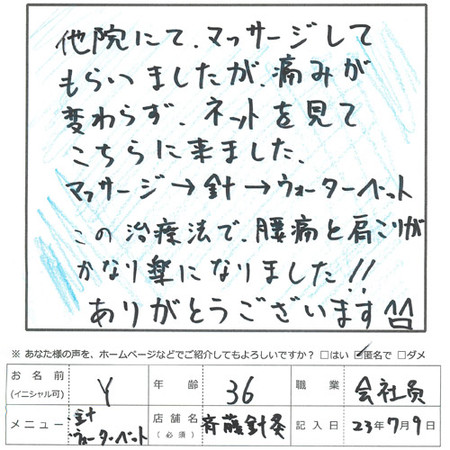 他院にて、マッサージして
もらいましたが、痛みが
変わらず、ネットを見て
こちらに来ました、
マッサージ→針→ウォーターベット
この治療法で、腰痛と肩こりが
かなり楽になりました!!
ありがとうございます^^
※ あなた様の声を、ホームページなどでご紹介してもよろしいですか? □はい ☑匿名で □ダメ
お名前 (イニシャル可) Y 年齢 36 職業 会社員
メニュー 針 ウォーターベット 店舗名 (必須) 斉藤針灸 記入日 23年7月9日